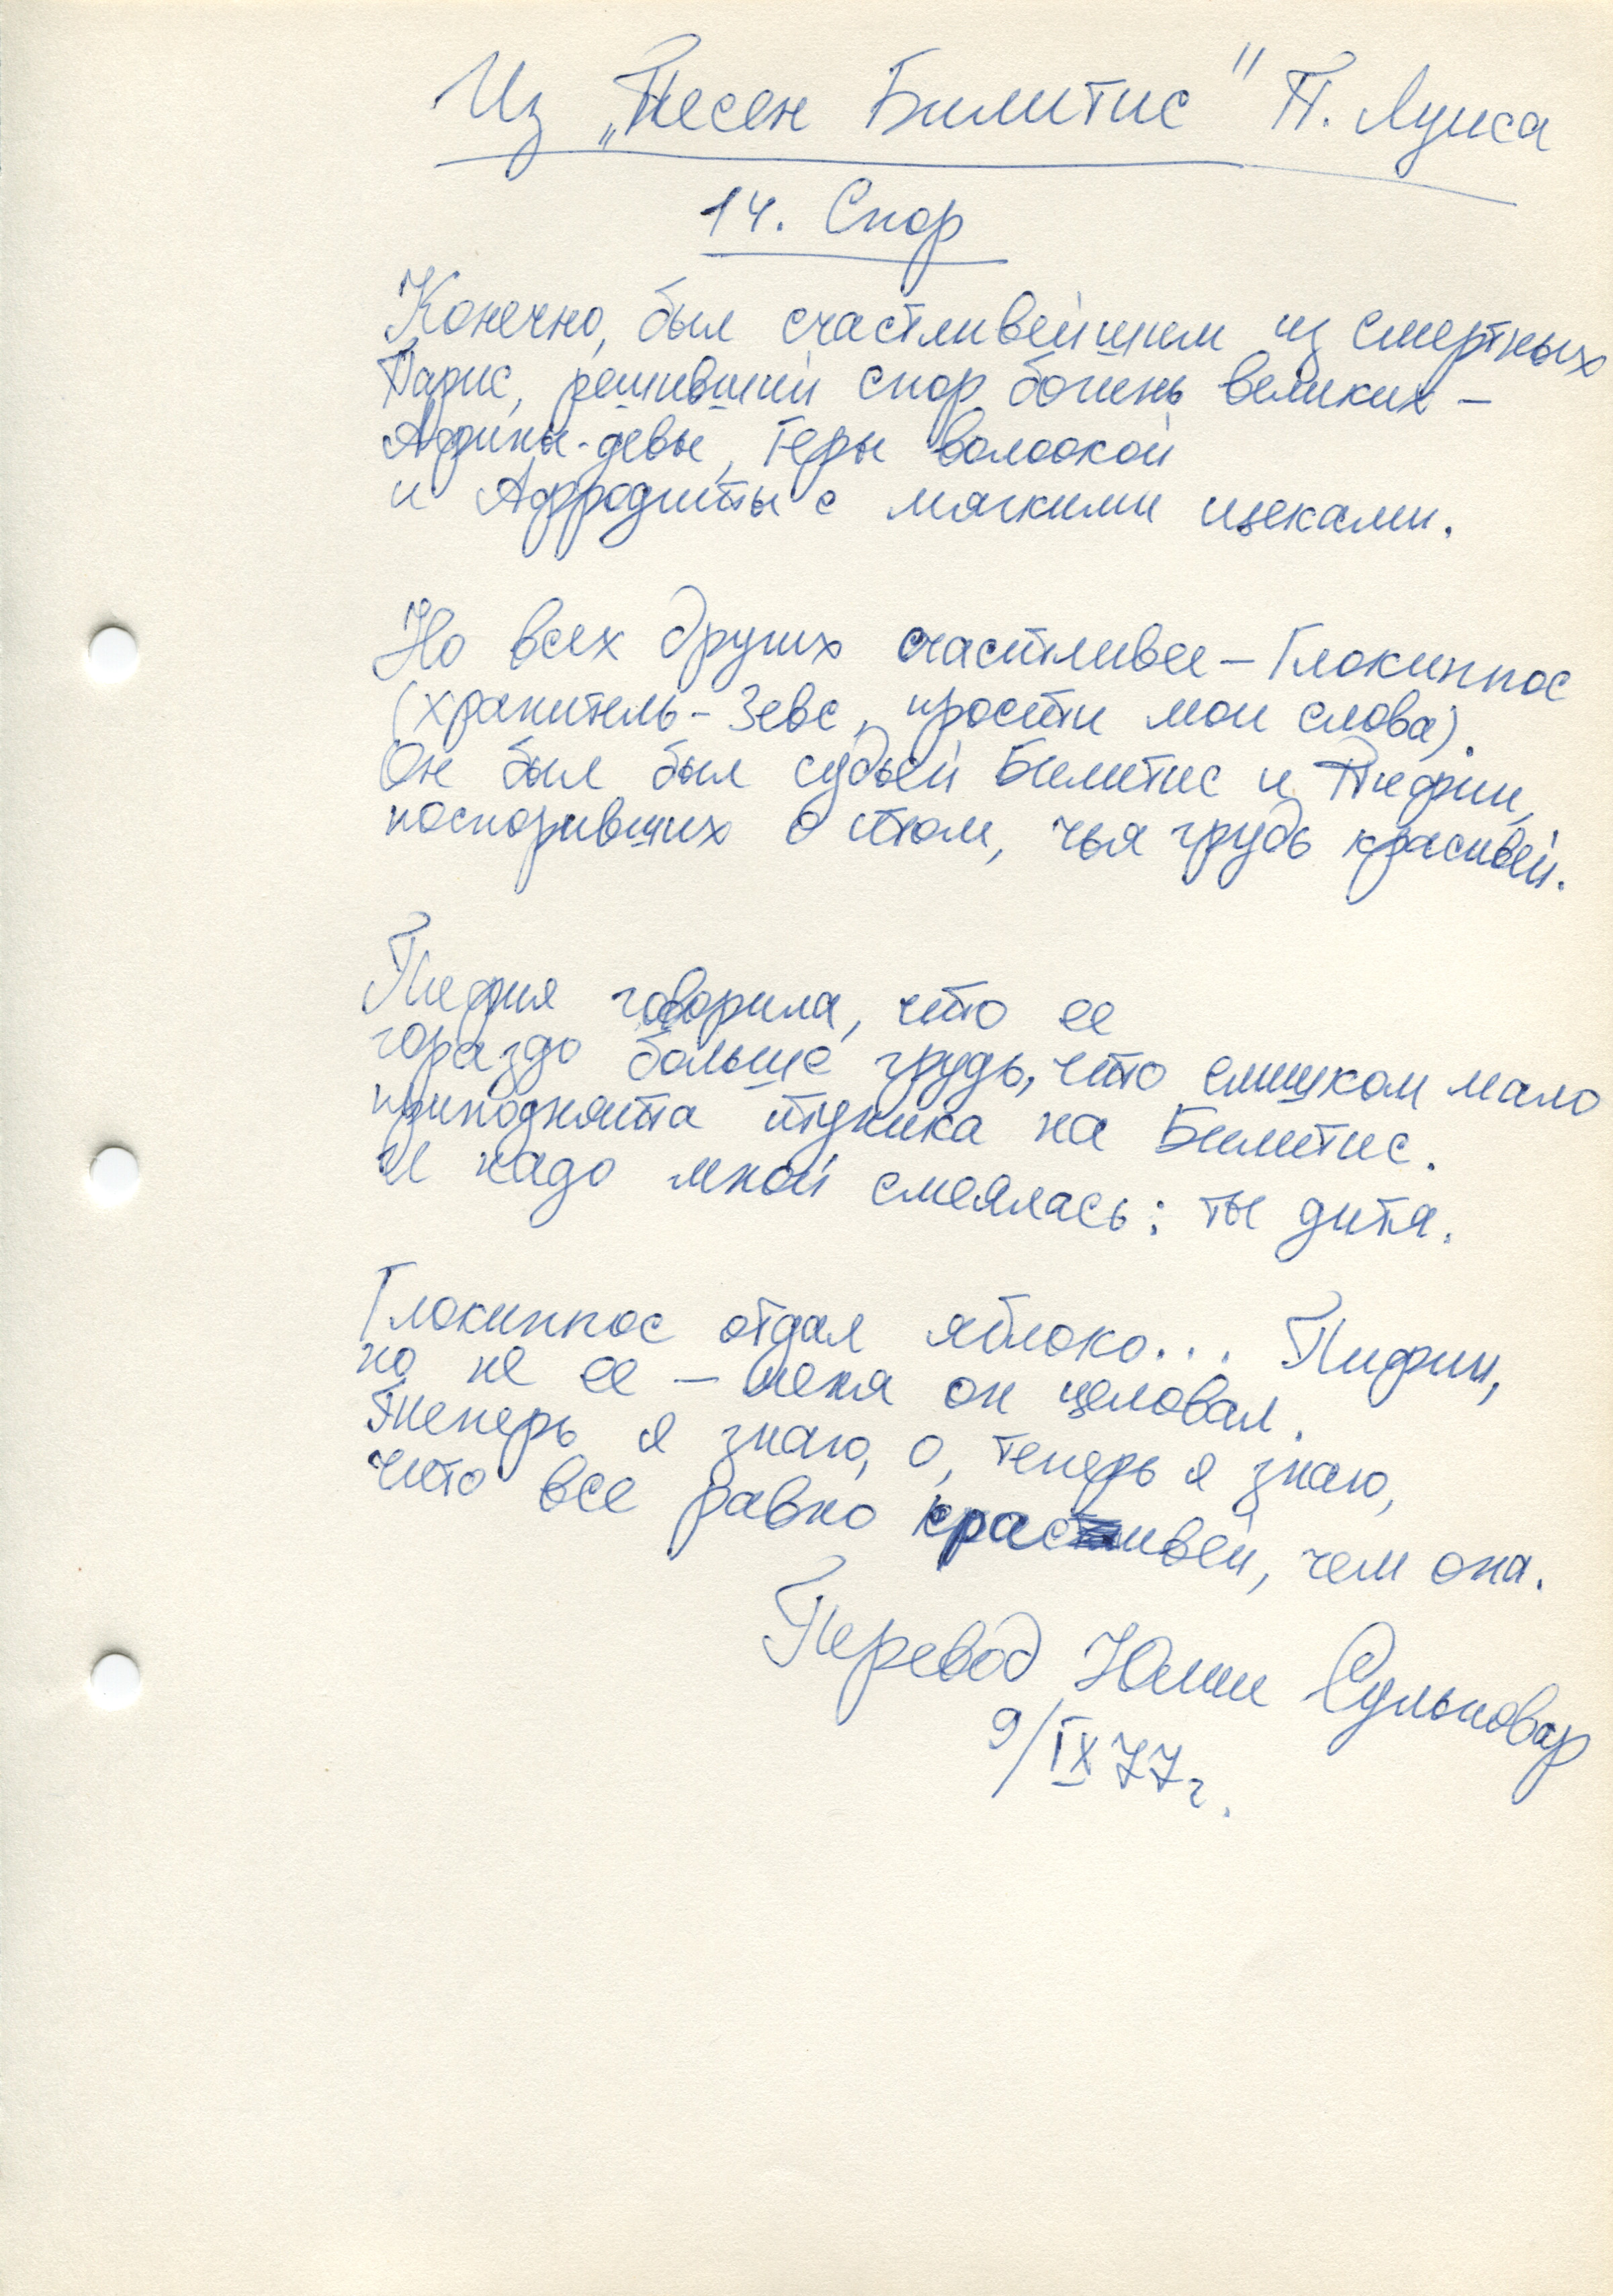 Из „Песен Билитис" П. Луиса
14. Спор
Конечно, был счастливейшим из смертных
Парис, решивший спор богинь великих –
Афины-девы, Геры волоокой
и Афродиты с мягкими щеками.
Но всех других счастливее – Глокиппос
(хранитель-Зевс, прости мои слова).
Он был был судьей Билитис и Пифии,
поспоривших о том, чья грудь красивей.
Пифия говорила, что ее
гораздо больше грудь, что слишком мало
приподнята туника на Билитис.
И надо мной смеялась: ты дитя.
Глокиппос отдал яблоко... Пифии,
но не ее – меня он целовал.
Теперь я знаю, о, теперь я знаю,
что все равно красивей, чем она.
Перевод Юлии Сульповар
9/IX 77 г.